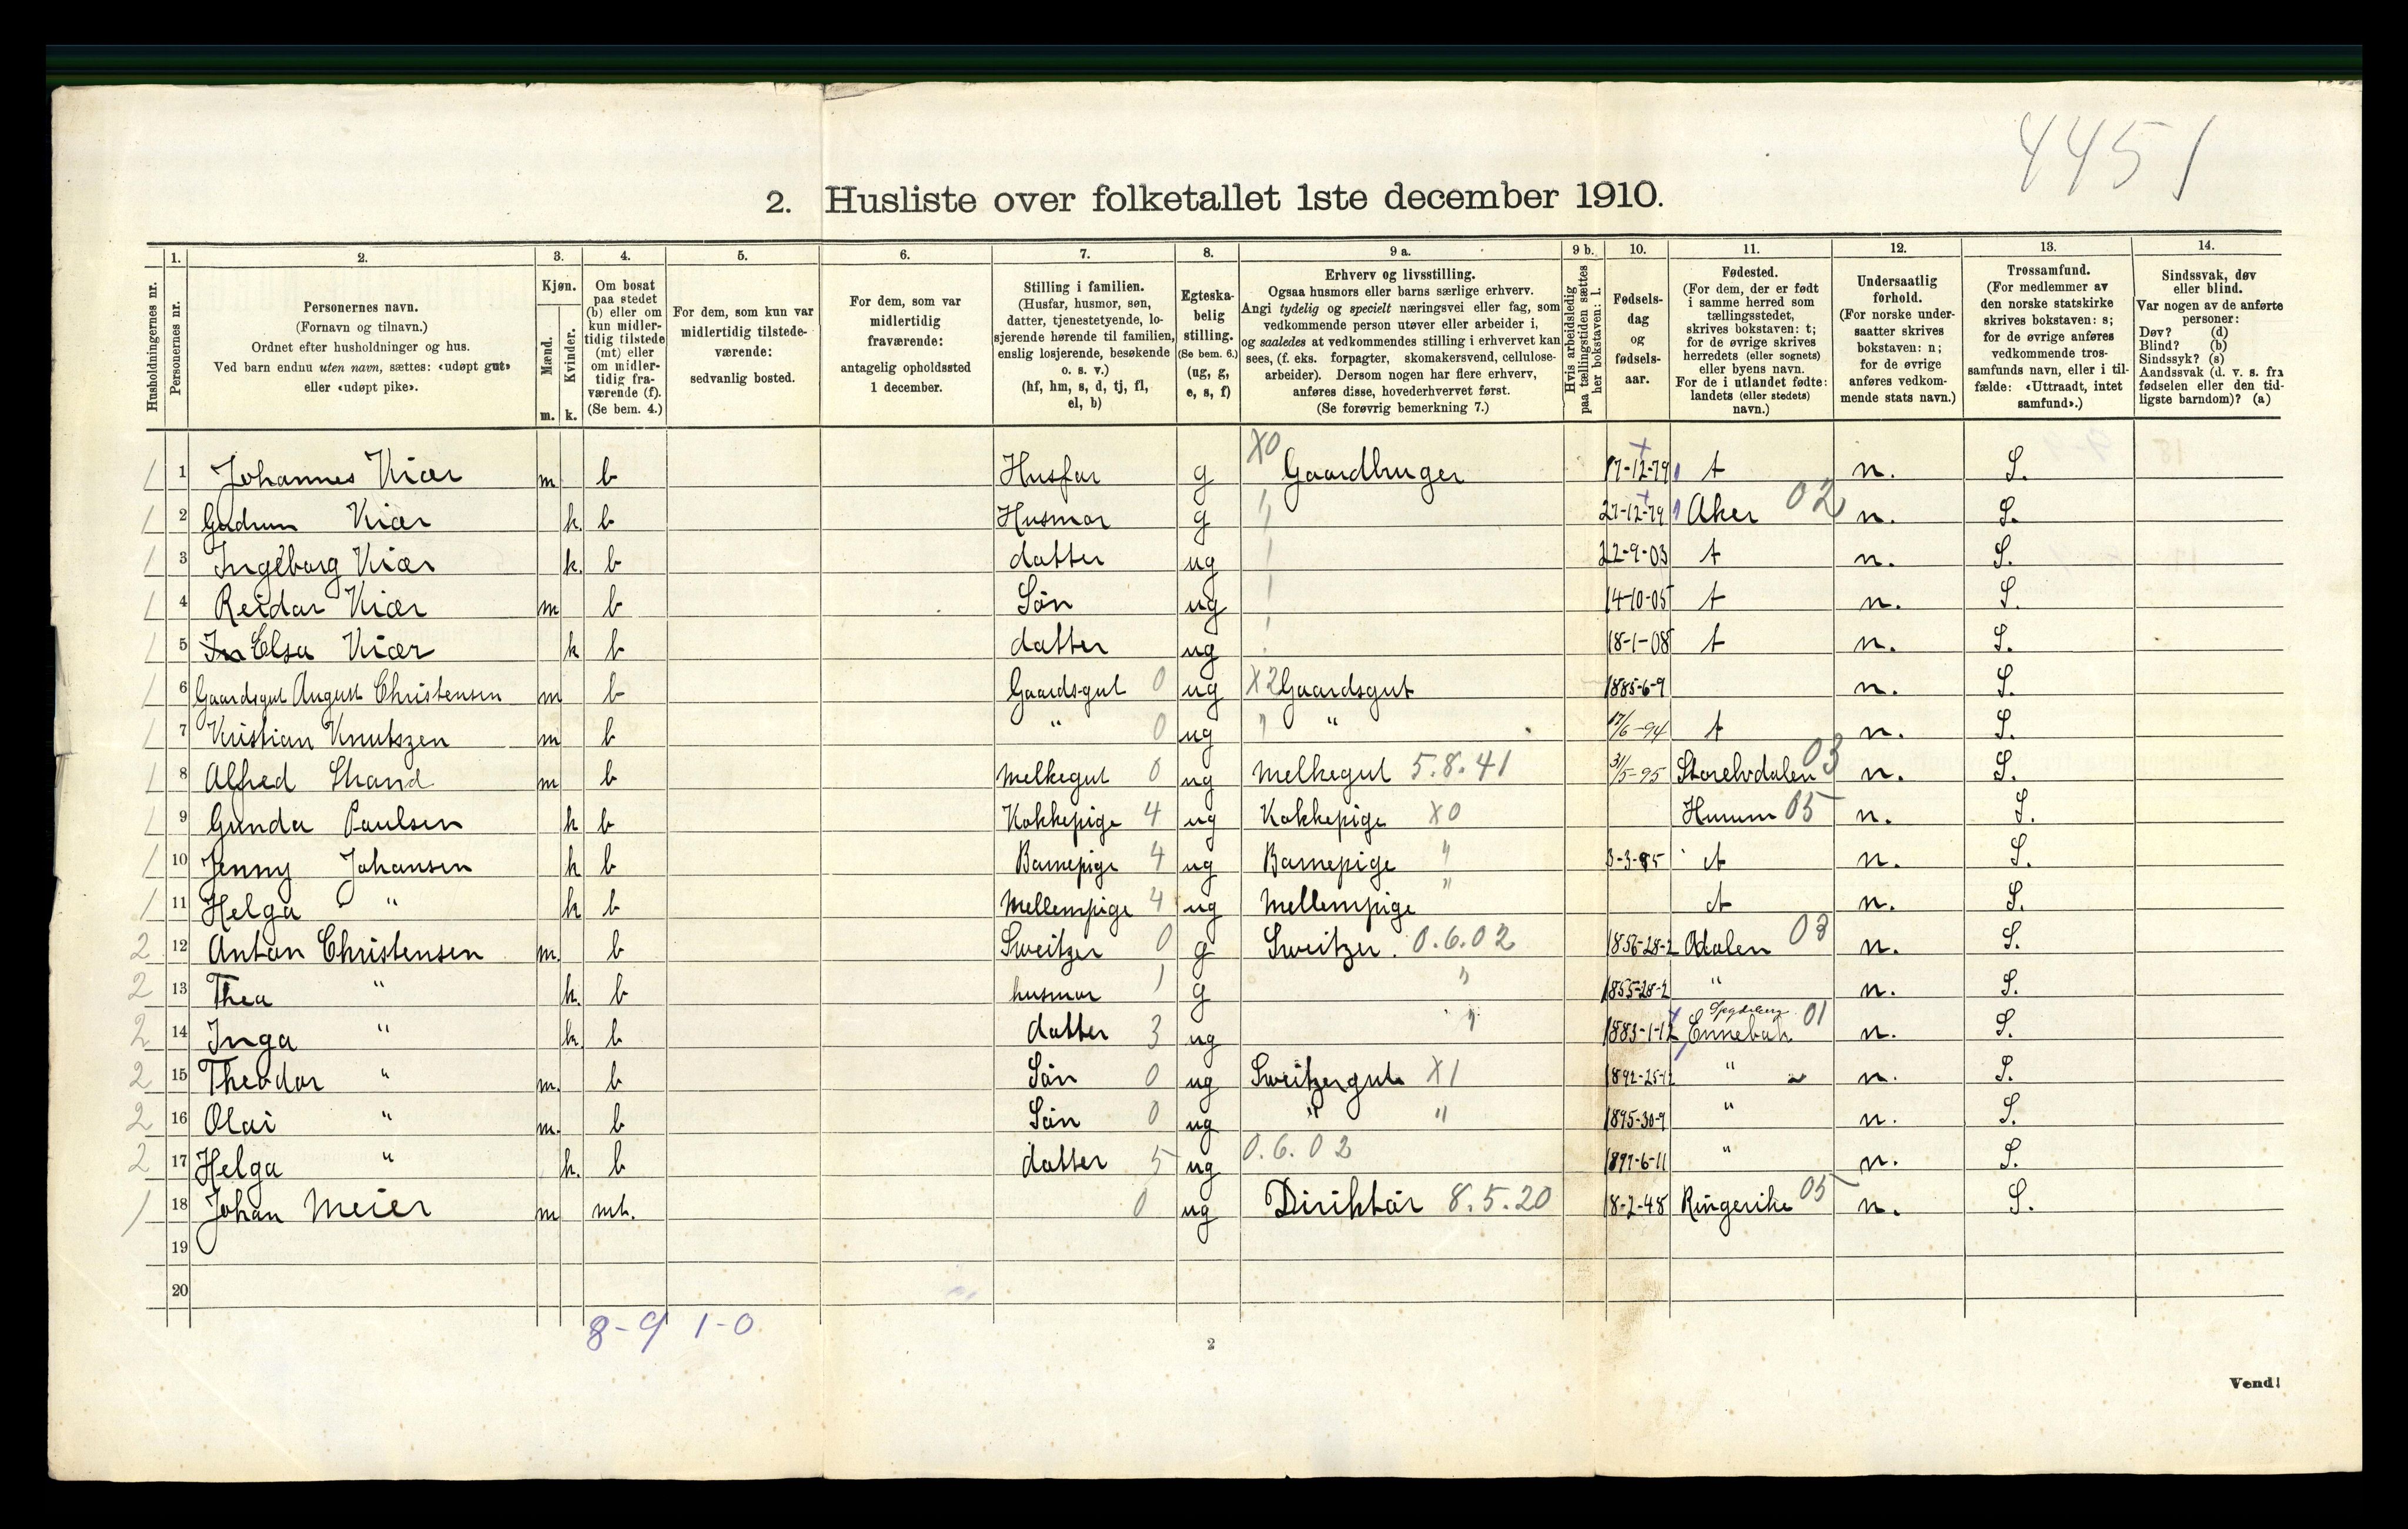 4451
2. Husliste over folketallet 1ste december 1910.
Husholdningernes nr.
1. Personernes nr.
2. Personernes navn. (Fornavn og tilnavn.) Ordnet efter husholdninger og hus. Ved barn endnu uten navn, sættes: «udøpt gut» eller «udøpt pike».
3. Kjøn. Mænd. m. Kvinder. k.
4. Om bosat paa stedet (b) eller om kun midlertidig tilstede (mt) eller om midlertidig fraværende (f). (Se bem. 4.)
5. For dem, som kun var midlertidig tilstedeværende: sedvanlig bosted.
6. For dem, som var midlertidig fraværende: antagelig opholdssted 1 december.
7. Stilling i familien. (Husfar, husmor, søn, datter, tjenestetyende, losjerende hørende til familien, enslig losjerende, besøkende o. s. v.) (hf, hm, s, d, tj, fl, el, b)
8. Egteskabelig stilling. (Se bem. 6.) (ug, g, e, s, f)
9 a. Erhverv og livsstilling. Ogsaa husmors eller barns særlige erhverv. Angi tydelig og specielt næringsvei eller fag, som vedkommende person utøver eller arbeider i, og saaledes at vedkommendes stilling i erhvervet kan sees, (f. eks. forpagter, skomakersvend, cellulosearbeider). Dersom nogen har flere erhverv, anføres disse, hovederhvervet først. (Se forøvrig bemerkning 7.)
9 b. Hvis arbeidsledig paa tællingstiden sættes her bokstaven: l.
10. Fødselsdag og fødselsaar.
11. Fødested. (For dem, der er født i samme herred som tællingsstedet, skrives bokstaven: t; for de øvrige skrives herredets (eller sognets) eller byens navn. For de i utlandet fødte: landets (eller stedets) navn.)
12. Undersaatlig forhold. (For norske undersaatter skrives bokstaven: n; for de øvrige anføres vedkommende stats navn.)
13. Trossamfund. (For medlemmer av den norske statskirke skrives bokstaven: s; for de øvrige anføres vedkommende trossamfunds navn, eller i tilfælde: «Uttraadt, intet samfund».)
14. Sindssvak, døv eller blind. Var nogen av de anførte personer: Døv? (d) Blind? (b) Sindssyk? (s) Aandssvak (d. v. s. fra fødselen eller den tidligste barndom)? (a)
1 1 Johannes Kiær m b Husfar g X0 Gaardbruger 17-12-79 t n. S.
1 2 Gudrun Kiær k. b Husmor g " 27-12-79 Aker 02 n. S.
1 3 Ingeborg Kiær k. b datter ug " 22-9-03 t n. S.
1 4 Reidar Kiær m b Sön ug " 14-10-05 t n. S.
1 5 In Elsa Kiær k b datter ug " 18-1-08 t n. S.
1 6 Gaardsgut August Christensen m b Gaardsgut 0 ug X2 Gaardsgut 1885-6-9 n. S.
1 7 Kristian Knutzen m b " 0 ug " " 17/6-94 t n. S.
1 8 Alfred Strand m b Melkegut 0 ug Melkegut 5.8.41 31/5-95 Storelvdalen 03 n. S.
1 9 Gunda Paulsen k b Kokkepige 4 ug Kokkepige X0 Hurum 05 n. S.
1 10 Jenny Johansen k b Barnepige 4 ug Barnepige " 3-3-85 t n. S.
1 11 Helga " k b Mellempige 4 ug Mellempige " t n. S.
2 12 Anton Christensen m. b Sweitzer 0 g Sweitzer. 0.6.02 1856-28-2 Odalen 03 n. S.
2 13 Thea " k. b husmor 1 g " 1855-28-2 " n. S.
2 14 Inga " k. b datter 3 ug " 1883-1-12 Spydeberg Ennebak 01 n. S.
2 15 Theodor " m. b Sön 0 ug Sweitzergut X1 1892-25-12 " n. S.
2 16 Olai " m. b Sön 0 ug " " 1895-30-9 " n. S.
2 17 Helga " k. b datter 5 ug 0.6.02 1897-6-11 " n. S.
1 18 Johan Meier m mt. 0 ug Diriktör 8.5.20 18-2-48 Ringerike 05 n. S.
19
20
8-9 1-0
2
Vend!